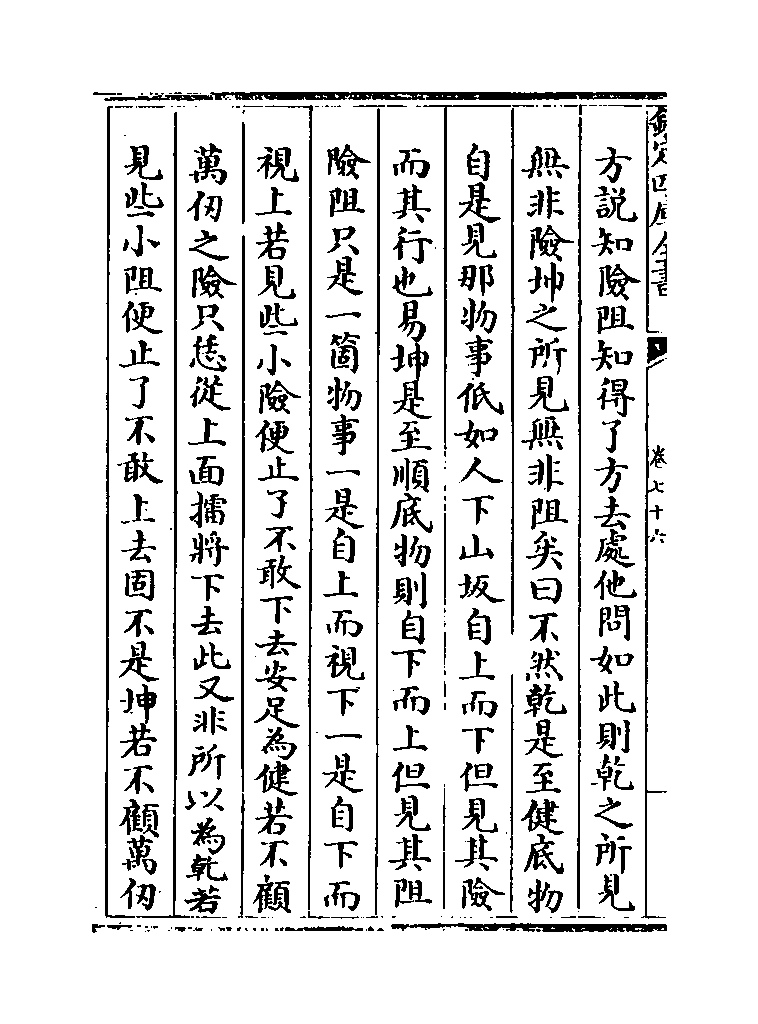 欽定四庫全書
卷七十六
方説知險阻知得了方去處他問如此則乾之所見
無非險坤之所見無非阻矣曰不然乾是至健底物
自是見那物事低如人下山坂自上而下但見其險
而其行也易坤是至順底物則自下而上但見其阻
險阻只是一箇物事一是自上而視下一是自下而
視上若見些小險便止了不敢下去安足為健若不顧
萬仞之險只恁從上面擂將下去此又非所以為乾若
見些小阻便止了不敢上去固不是坤若不顧萬仞